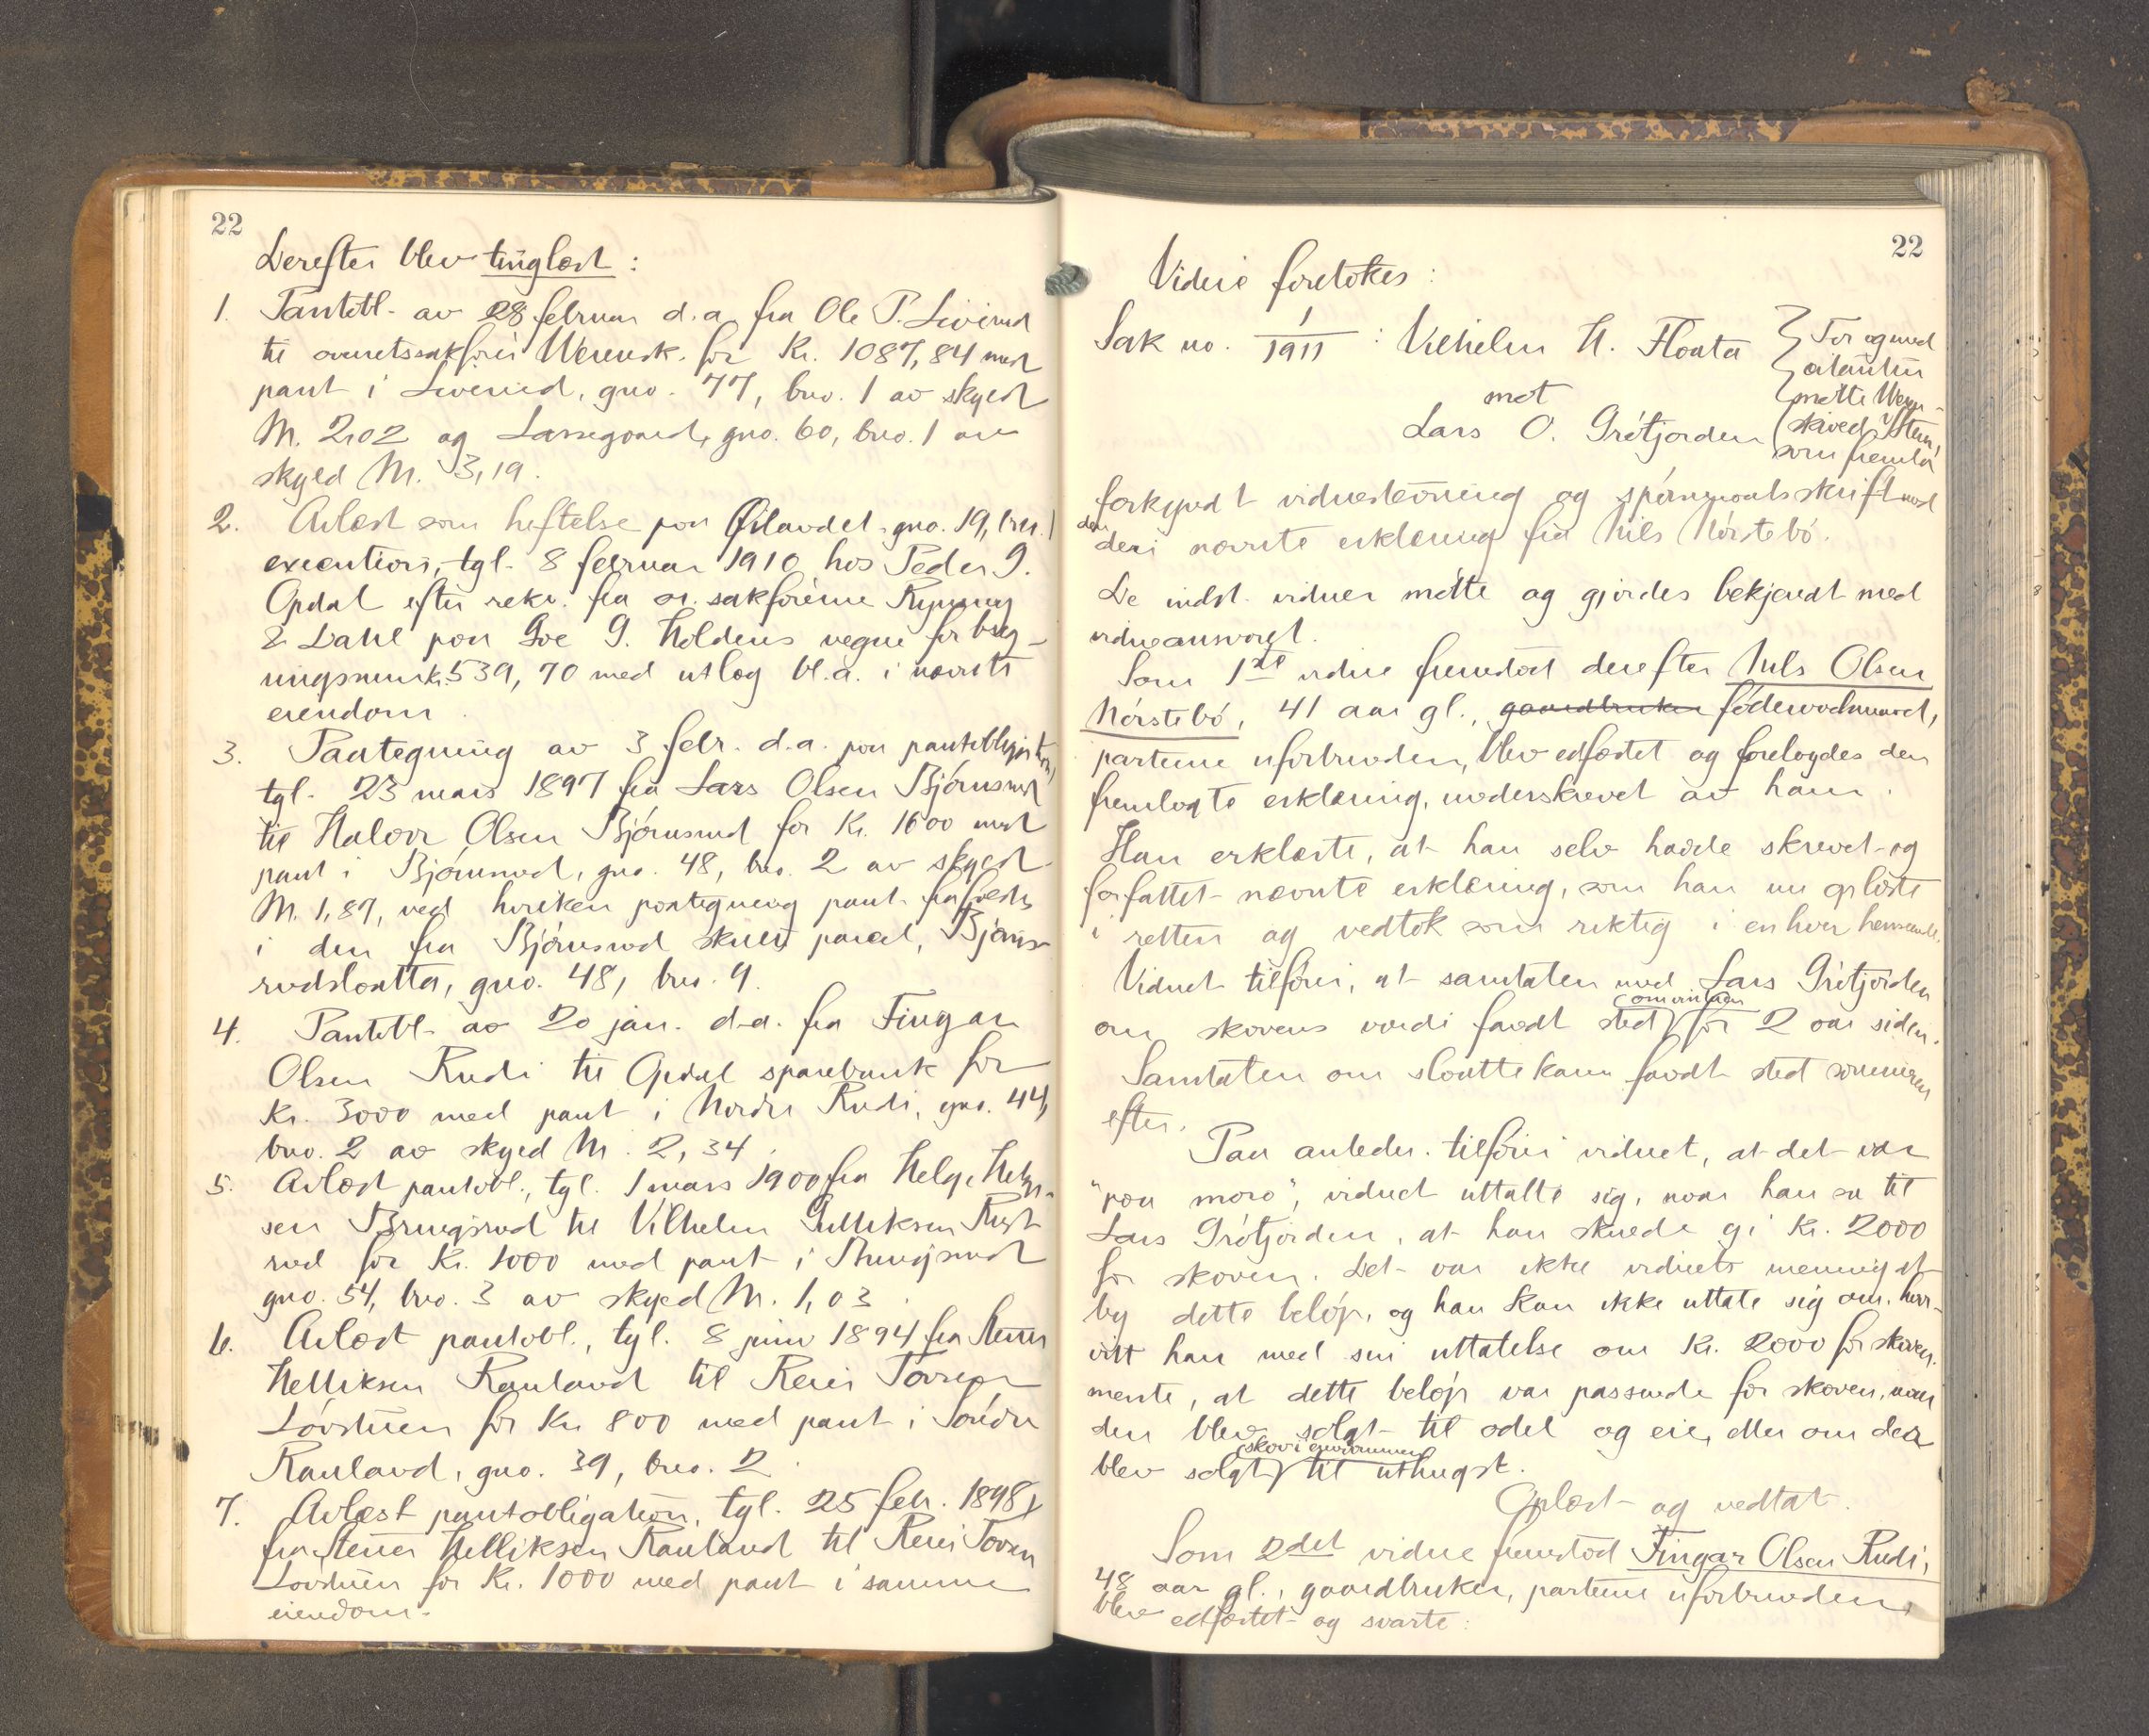 22
Derefter blev tinglæst :
1. Pantobl. av 28 februar d.a. fra Ole P. Liverud
til overretssakfører Werensk. for Kr. 1087,84 med
pant i Liverud, gno. 77, bno. 1 av skyld
M. 2,02 og Lassegaard, gno. 60, bno. 1 av
skyld M. 3,19.
2. Avlæst som heftelse paa gno. 19, bno. 1
execution, tgl. 8 februar 1910 hos Peder G.
Opdal efter rekv. fra or. sakførerne
& Dahl paa G. Holdens vegne for
539,70 med utlæg bl.a. i nævnte
eiendom.
3. Paategning av 3 febr. d.a. paa pantobligation,
tgl. 23 mars 1897 fra Lars Olsen Bjørnsrud
til Halvor Olsen Bjørnsrud for Kr. 1600 med
pant i Bjørnsrud, gno. 48, bno. 2 av skyld
M. 1,87, ved hvilken paategning pant frafaldes
i den fra Bjørnsrud skyldt parcel, Bjørns-
rudslaatta, gno. 48, bno. 9.
4. Pantobl. av 20 jan. d.a. fra Fingar
Olsen Rudi til Opdal sparebank for
Kr. 3000 med pant i Nordre Rudi, gno. 44,
bno. 2 av skyld M. 2,34.
5. Avlæst pantobl., tgl. 1 mars 1900 fra Helge Helge-
sen Bringsrud til Vilhelm Gulliksen
rud for Kr. 1000 med pant i Bringsrud
gno. 54, bno. 3 av skyld M. 1,03.
6. Avlæst pantobl., tgl. 8 juni 1894 fra Stener
Helliksen Rauland til Reier
Løvstuen for Kr. 800 med pant i Søndre
Rauland, gno. 39, bno. 2.
7. Avlæst pantobligation, tgl. 25 febr. 1898
fra Stener Helliksen Rauland til Reier
Løvstuen for Kr. 1000 med pant i samme
eiendom.
22
Videre foretokes :
Sak no. 1/1911 : Vilhelm H. Floata
mot
Lars O. Grøtjorden
For og med
citanten
møtte Weren-
skiold Steen,
som fremla
forkyndt vidnestevning og spørsmaalsskrift med
den deri nævnte erklæring fra Nils Nørstebø.
De indst. vidner møtte og gjordes bekjendt med
vidneansvaret.
Som 1ste vidne fremstod derefter Nils Olsen
Nørstebø, 41 aar gl., gaardbruker føderaadsmand,
parterne uforbunden, blev edfæstet og forelagdes den
fremlagte erklæring, underskrevet av ham.
Han erklærte, at han selv hadde skrevet og
forfattet nævnte erklæring, som han nu oplæste
i retten og vedtok som riktig i enhver henseende.
Vidnet tilføier, at samtalen med Lars Grøtjorden
om skovens værdi fandt sted om vinteren for 2 aar siden.
Samtalen om slaattekam fandt sted sommeren
efter.
Paa anledn. tilføier vidnet, at det var
"paa moro", vidnet uttalte sig, naar han sa til
Lars Grøtjorden, at han skulde gi Kr. 2000
for skoven. Det var ikke vidnets mening at
by dette beløp, og han kan ikke uttale sig om, hor-
vitt han med sin uttalelse om Kr. 2000 for skoven.
mente, at dette beløp var passende for skoven, naar
den blev solgt til odel og eie, eller om den
blev solgt skov i grunnen til uthugst.
Oplæst og vedtat.
Som 2det vidne fremstod Fingar Olsen Rudi,
48 aar gl., gaardbruker, parterne uforbunden,
blev edfæstet og svarte :